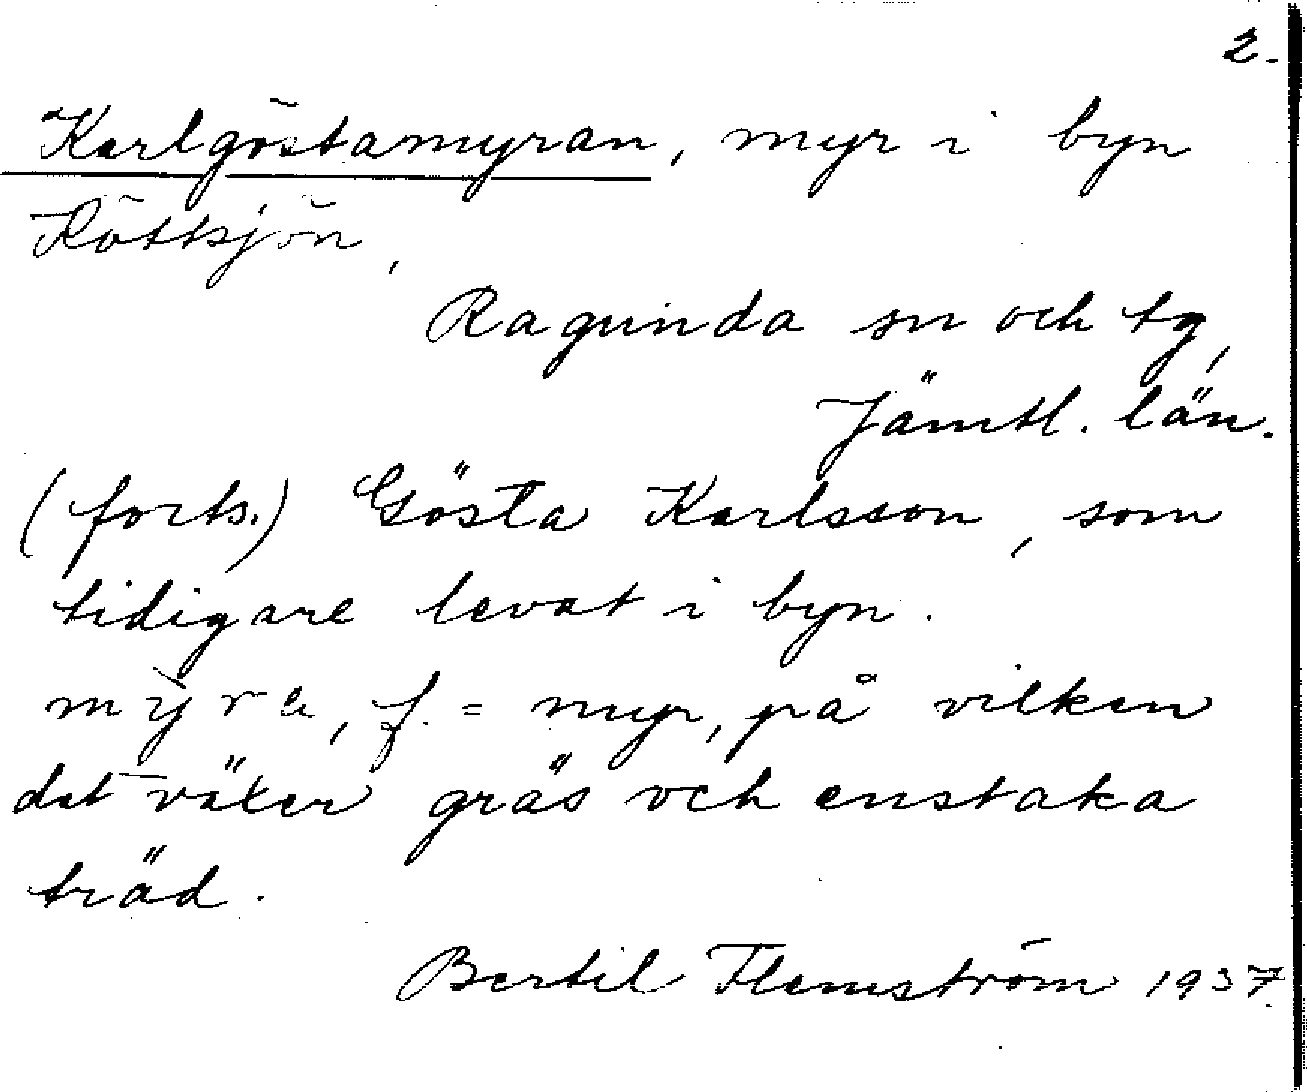 2.
Karlgöstamyran, myr i byn
Köttsjön,
Ragunda sn och tg,
Jämtl. län.
(forts.) Gösta Karlsson, som
tidigare levat i byn.
mỳra, f. = myr, på vilken
det växer gräs och enstaka
träd.
Bertil Flemström 1937.